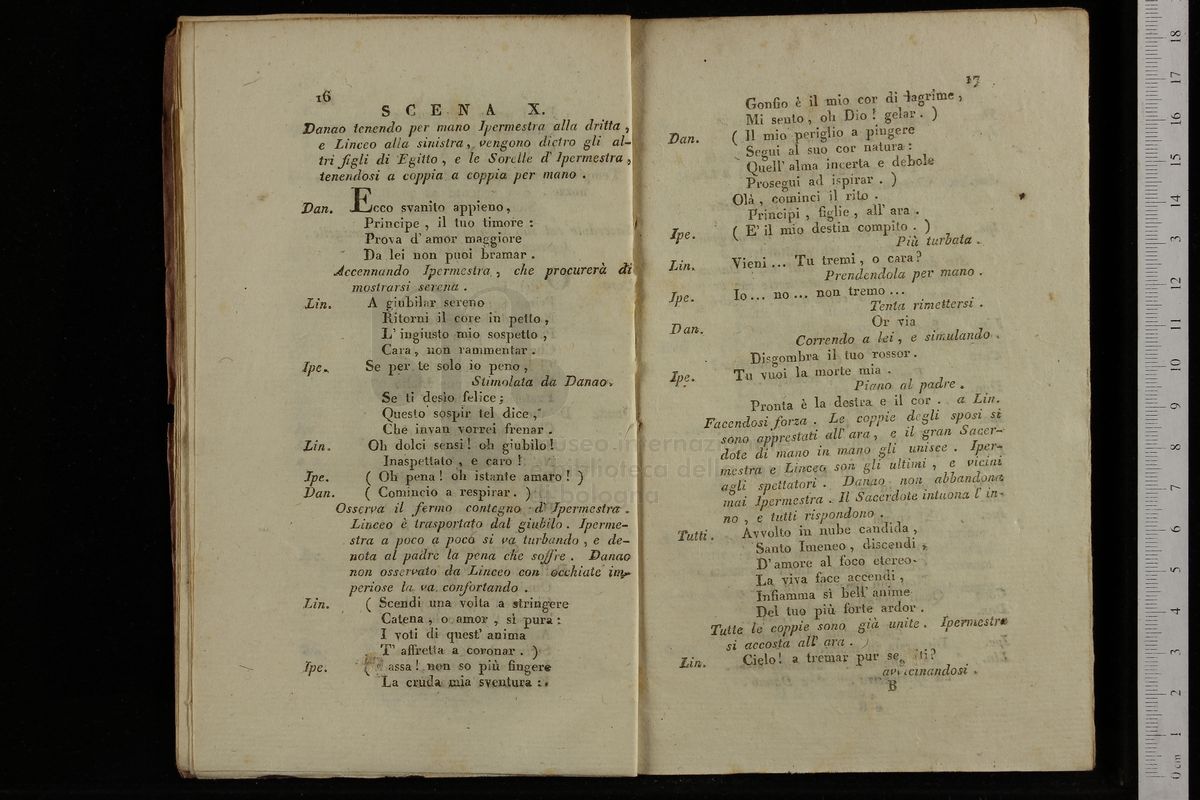 16
SCENA X.
Danao tenendo per mano Ipermestra alla dritta,
e Linceo alla sinistra, vengono dietro gli al-
tri figli di Egitto, e le Sorelle d'Ipermestra,
tenendosi a coppia a coppia per mano.
Dan. Ecco svanito appieno,
Principe, il tuo timore:
Prova d'amor maggiore
Da lei non puoi bramar.
Accennando Ipermestra, che procurerà di
mostrarsi serena.
Lin. A giubilar sereno
Ritorni il core in petto,
L'ingiusto mio sospetto,
Cara, non rammentar.
Ipe. Se per te solo io peno,
Stimolata da Danao.
Se ti desio felice;
Questo sospir tel dice,
Che invan vorrei frenar.
Lin. Oh dolci sensi! oh giubilo!
Inaspettato, e caro!
Ipe. (Oh pena! oh istante amaro!)
Dan. (Comincio a respirar.)
Osserva il fermo contegno d'Ipermestra.
Linceo è trasportato dal giubilo. Iperme-
stra a poco a poco si va turbando, e de-
nota al padre la pena che soffre. Danao
non osservato da Linceo con occhiate im-
periose la va confortando.
Lin. (Scendi una volta a stringere
Catena, o amor, sì pura:
I voti di quest'anima
T'affretta a coronar.)
Ipe. ( assa! non so più fingere
La cruda mia sventura:
17
Gonfio è il mio cor di lagrime,
Mi sento, oh Dio! gelar.)
Dan. (Il mio periglio a pingere
Segui al suo cor natura:
Quell'alma incerta e debole
Prosegui ad ispirar.)
Olà, cominci il rito.
Principi, figlie, all'ara.
Ipe. (E' il mio destin compito.)
Più turbata.
Lin. Vieni... Tu tremi, o cara?
Prendendola per mano.
Ipe. Io... no... non tremo...
Tenta rimettersi.
Dan. Or via
Correndo a lei, e simulando.
Disgombra il tuo rossor.
Ipe. Tu vuoi la morte mia.
Piano al padre.
Pronta è la destra e il cor. a Lin.
Facendosi forza. Le coppie degli sposi si
sono apprestati all'ara, e il gran Sacer-
dote di mano in mano gli unisce. Iper-
mestra e Linceo son gli ultimi, e vicini
agli spettatori. Danao non abbandona
mai Ipermestra. Il Sacerdote intuona l'in-
no, e tutti rispondono.
Tutti. Avvolto in nube candida,
Santo Imeneo, discendi,
D'amore al foco etereo
La viva face accendi,
Infiamma sì bell'anime
Del tuo più forte ardor.
Tutte le coppie sono già unite. Ipermestra
si accosta all'ara.
Lin. Cielo! a tremar pur
avvicinandosi.
B